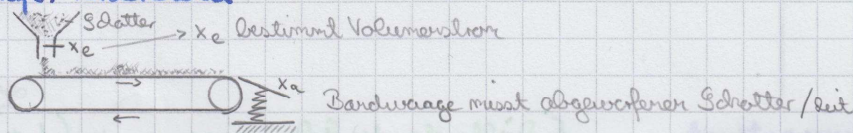 Schotter
xe → xe bestimmt Volumenstrom
xa
Bandwaage misst abgeworfenen Schotter/Zeit